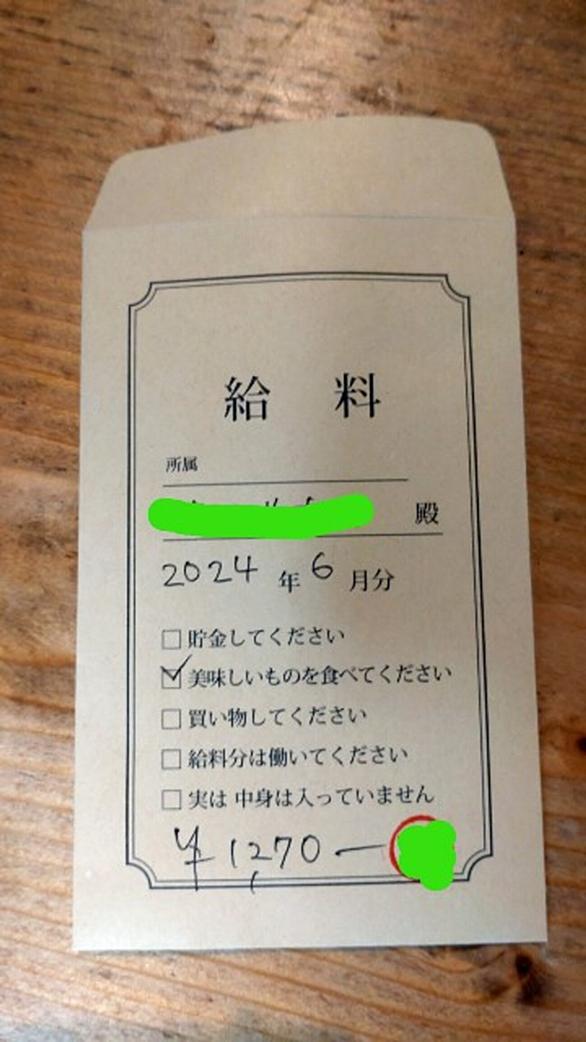 給 料
所属
殿
2024 年 6 月分
□ 貯金してください
☑ 美味しいものを食べてください
□ 買い物してください
□ 給料分は働いてください
□ 実は 中身は入っていません
¥1,270−